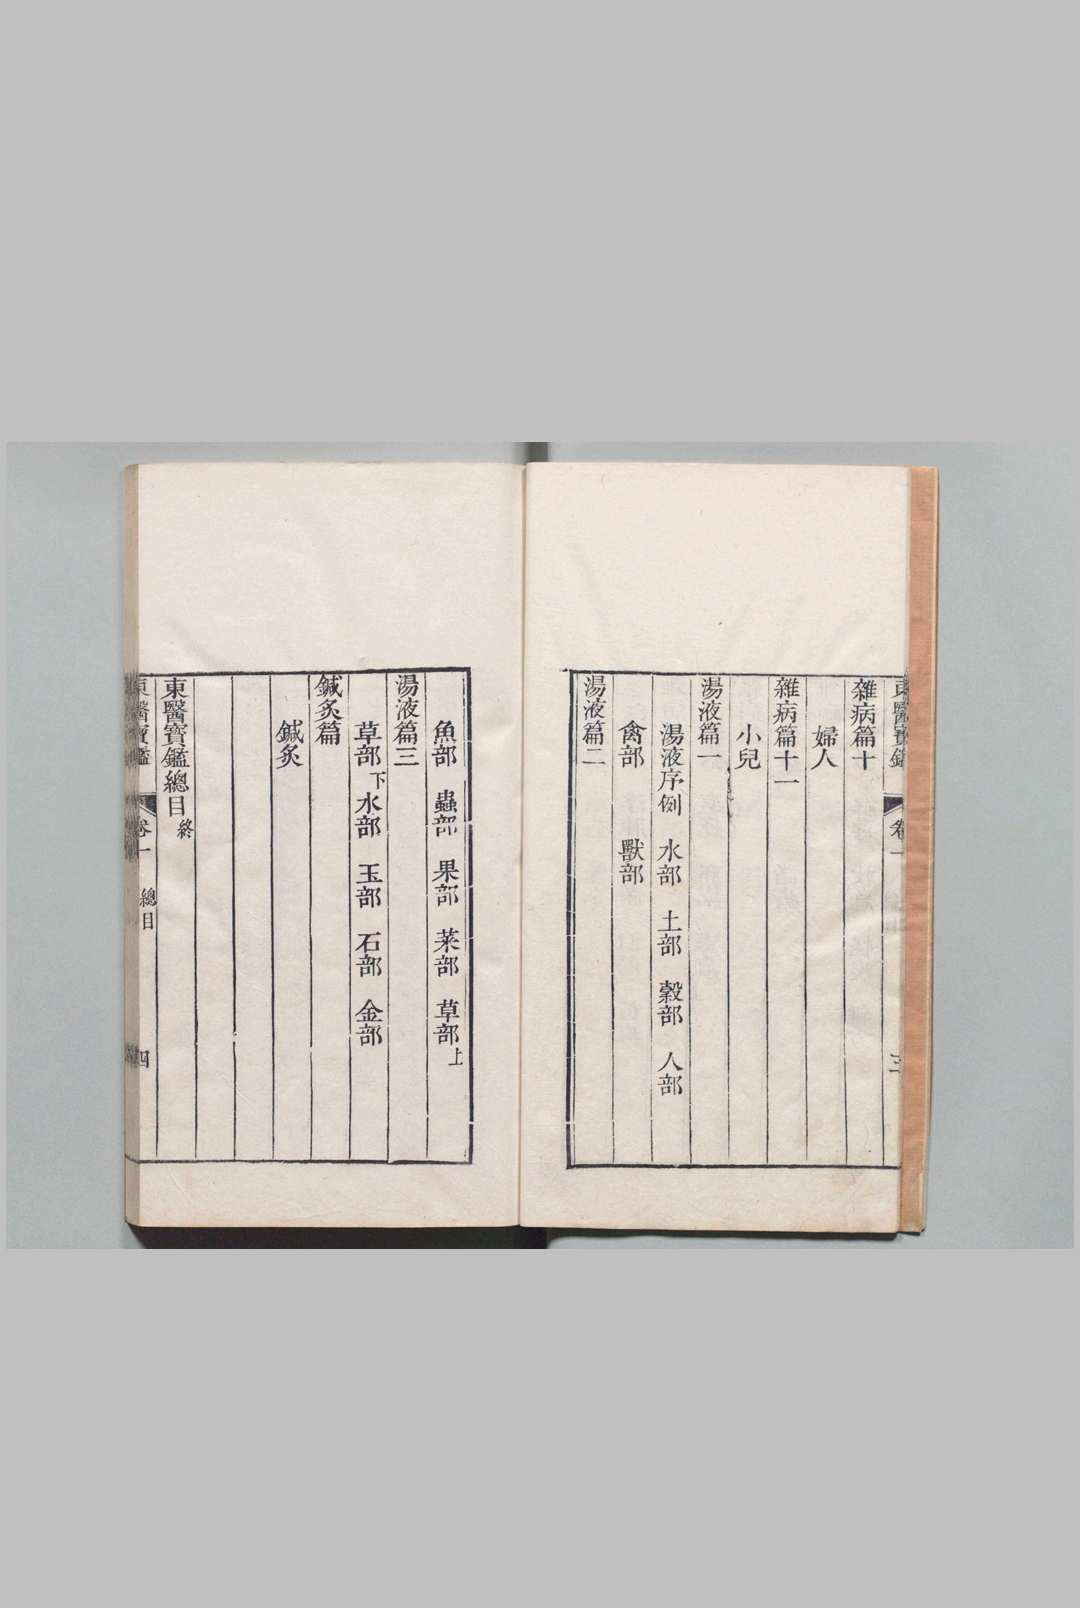 東醫寶鑑 卷一 三
雜病篇十
婦人
雜病篇十一
小兒
湯液篇一
湯液序例 水部 土部 穀部 人部
禽部 獸部
湯液篇二
魚部 蟲部 果部 菜部 草部上
湯液篇三
草部下 水部 玉部 石部 金部
鍼灸篇
鍼灸
東醫寶鑑總目終
東醫寶鑑 卷一 總目 四